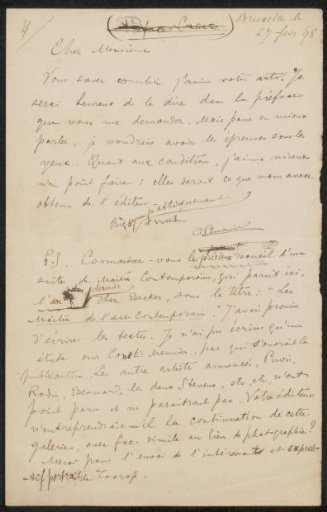 4
Bruxelles, le
27 févr. 98
Cher Monsieur
Vous savez combien j'aime votre art. Je
serai heureux de le dire dans la préface
que vous me demandez. Mais pour en mieux
parler, je voudrais avoir les épreuves sous les
yeux. Quant aux conditions, j'aime mieux
n'en point faire : elles seront ce que vous aurez
obtenu de l'éditeur.
à vous
P.S. Connaissez-vous le premier recueil d'une
suite de Maîtres Contemporains, qui parut ici,
l'an dernier chez Becker, sous le titre : "Les
Maîtres de l'art Contemporain". J'avais promis
d'écrire les textes. Je n'ai pu écrire qu'une
étude sur Const. Meunier, par qui s'ouvrait la
publication. Les autres artistes annoncés, Puvis,
Rodin, Besnard, les deux Stevens, etc, etc, n'ont
point paru et ne paraîtront pas. Votre éditeur
n'entreprendrait-il la continuation de cette
galerie, avec fac-simile au lieu de photographie?
Merci pour l'envoi de l'intéressant et expres-
sif portrait de Toorop.